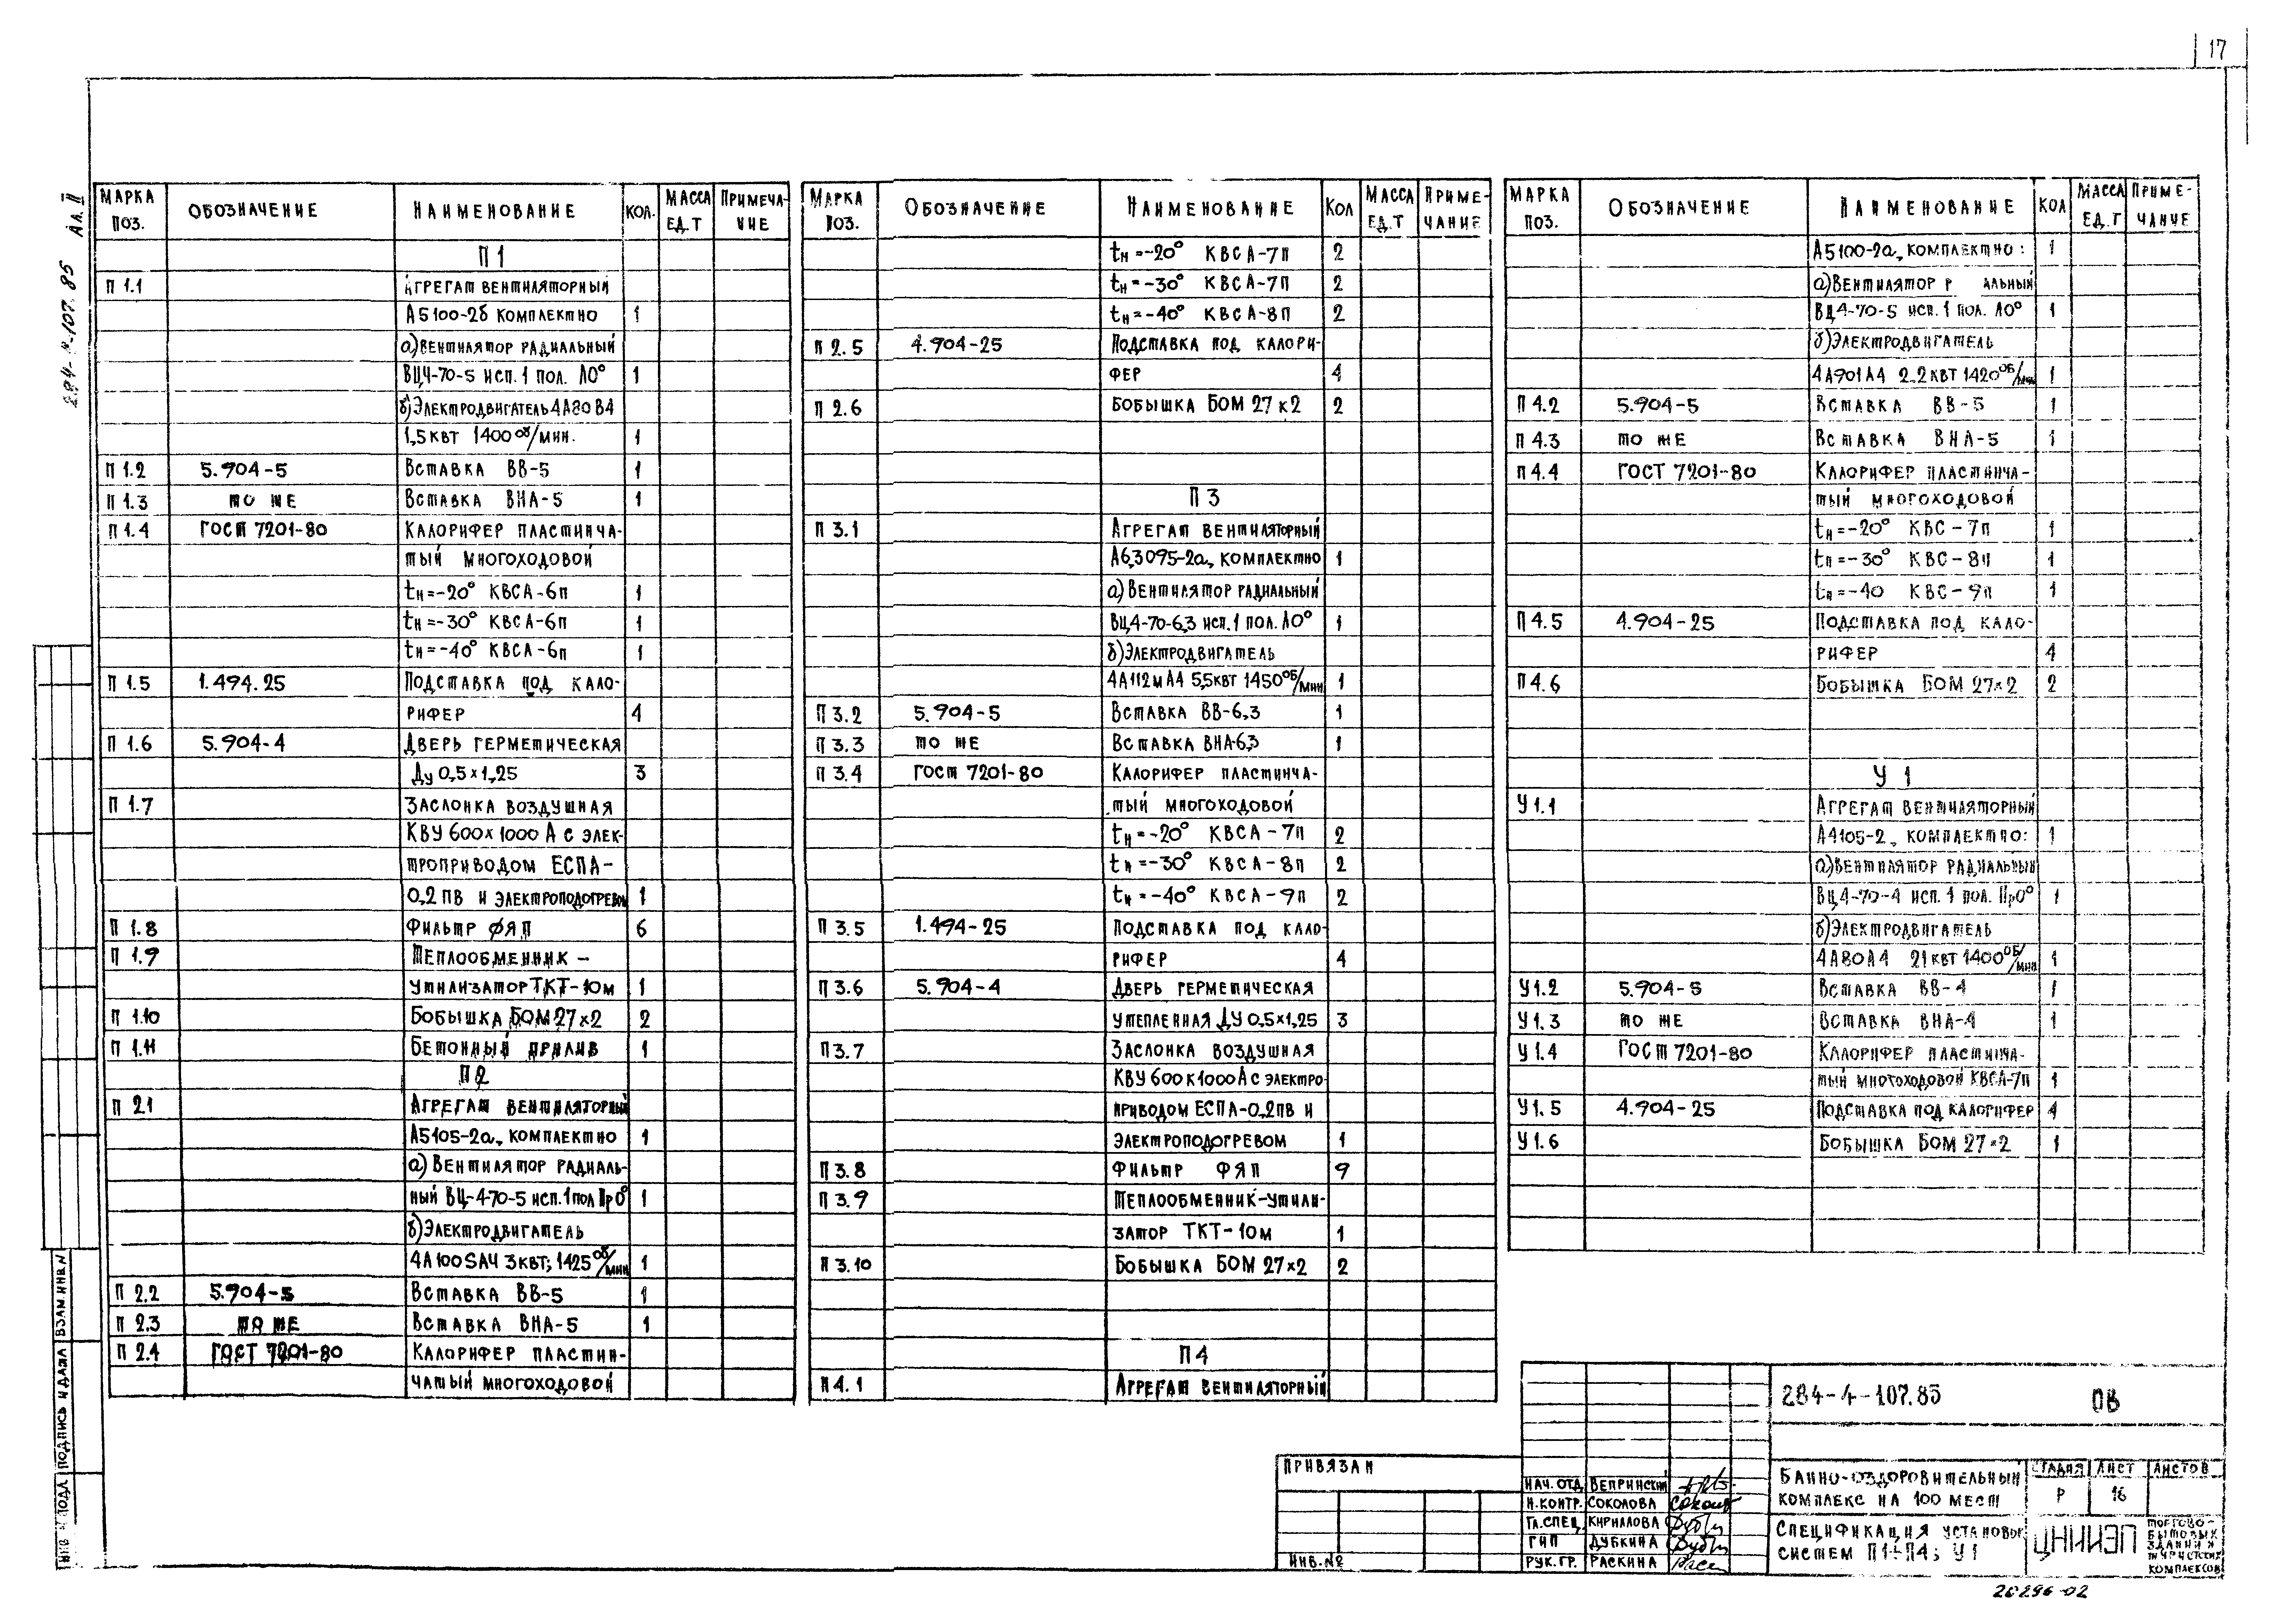 17
284-4-107.85 Ал. II
МАРКА ПОЗ. ОБОЗНАЧЕНИЕ НАИМЕНОВАНИЕ КОЛ. МАССА ЕД.Т ПРИМЕЧАНИЕ
П1
П 1.1 АГРЕГАТ ВЕНТИЛЯТОРНЫЙ
А5100-2б КОМПЛЕКТНО 1
а) ВЕНТИЛЯТОР РАДИАЛЬНЫЙ
ВЦ4-70-5 ИСП.1 ПОЛ. Л0° 1
б) ЭЛЕКТРОДВИГАТЕЛЬ 4А80В4
1,5 КВТ 1400 ОБ/МИН. 1
П 1.2 5.904-5 ВСТАВКА ВВ-5 1
П 1.3 ТО ЖЕ ВСТАВКА ВНА-5 1
П 1.4 ГОСТ 7201-80 КАЛОРИФЕР ПЛАСТИНЧА-
ТЫЙ МНОГОХОДОВОЙ
tн=-20° КВСА-6п 1
tн=-30° КВСА-6п 1
tн=-40° КВСА-6п 1
П 1.5 1.494.25 ПОДСТАВКА ПОД КАЛО-
РИФЕР 4
П 1.6 5.904-4 ДВЕРЬ ГЕРМЕТИЧЕСКАЯ
Ду 0,5×1,25 3
П 1.7 ЗАСЛОНКА ВОЗДУШНАЯ
КВУ 600×1000 А С ЭЛЕК-
ТРОПРИВОДОМ ЕСПА-
0,2 ПВ И ЭЛЕКТРОПОДОГРЕВОМ 1
П 1.8 ФИЛЬТР ФЯП 6
П 1.9 ТЕПЛООБМЕННИК –
УТИЛИЗАТОР ТКТ-10М 1
П 1.10 БОБЫШКА БОМ 27×2 2
П 1.11 БЕТОННЫЙ ПРИЛИВ 1
П2
П 2.1 АГРЕГАТ ВЕНТИЛЯТОРНЫЙ
А5105-2а, КОМПЛЕКТНО 1
а) ВЕНТИЛЯТОР РАДИАЛЬ-
НЫЙ ВЦ-4-70-5 ИСП.1 ПОЛ Пр0° 1
б) ЭЛЕКТРОДВИГАТЕЛЬ
4А100SА4 3 КВТ; 1425 ОБ/МИН 1
П 2.2 5.904-5 ВСТАВКА ВВ-5 1
П 2.3 ТО ЖЕ ВСТАВКА ВНА-5 1
П 2.4 ГОСТ 7201-80 КАЛОРИФЕР ПЛАСТИН-
ЧАТЫЙ МНОГОХОДОВОЙ
МАРКА ПОЗ. ОБОЗНАЧЕНИЕ НАИМЕНОВАНИЕ КОЛ МАССА ЕД.Т ПРИМЕ-ЧАНИЕ
tн=-20° КВСА-7П 2
tн=-30° КВСА-7П 2
tн=-40° КВСА-8П 2
П 2.5 4.904-25 ПОДСТАВКА ПОД КАЛОРИ-
ФЕР 4
П 2.6 БОБЫШКА БОМ 27×2 2
П3
П 3.1 АГРЕГАТ ВЕНТИЛЯТОРНЫЙ
А6,3095-2а, КОМПЛЕКТНО 1
а) ВЕНТИЛЯТОР РАДИАЛЬНЫЙ
ВЦ4-70-6,3 ИСП.1 ПОЛ. Л0° 1
б) ЭЛЕКТРОДВИГАТЕЛЬ
4А112МА4 5,5 КВТ 1450 ОБ/МИН 1
П 3.2 5.904-5 ВСТАВКА ВВ-6,3 1
П 3.3 ТО ЖЕ ВСТАВКА ВНА-6,3 1
П 3.4 ГОСТ 7201-80 КАЛОРИФЕР ПЛАСТИНЧА-
ТЫЙ МНОГОХОДОВОЙ
tн=-20° КВСА-7П 2
tн=-30° КВСА-8П 2
tн=-40° КВСА-9П 2
П 3.5 1.494-25 ПОДСТАВКА ПОД КАЛО-
РИФЕР 4
П 3.6 5.904-4 ДВЕРЬ ГЕРМЕТИЧЕСКАЯ
УТЕПЛЕННАЯ ДУ 0,5×1,25 3
П 3.7 ЗАСЛОНКА ВОЗДУШНАЯ
КВУ 600×1000 А С ЭЛЕКТРО
ПРИВОДОМ ЕСПА-0,2ПВ И
ЭЛЕКТРОПОДОГРЕВОМ 1
П 3.8 ФИЛЬТР ФЯП 9
П 3.9 ТЕПЛООБМЕННИК-УТИЛИ-
ЗАТОР ТКТ-10М 1
П 3.10 БОБЫШКА БОМ 27×2 2
П4
П 4.1 АГРЕГАТ ВЕНТИЛЯТОРНЫЙ
МАРКА ПОЗ. ОБОЗНАЧЕНИЕ НАИМЕНОВАНИЕ КОЛ МАССА ЕД.Т ПРИМЕ-ЧАНИЕ
А5100-2а, КОМПЛЕКТНО: 1
а) ВЕНТИЛЯТОР Р АЛЬНЫЙ
ВЦ4-70-5 ИСП.1 ПОЛ. Л0° 1
б) ЭЛЕКТРОДВИГАТЕЛЬ
4А901А4 2.2 КВТ 1420 ОБ/МИН 1
П 4.2 5.904-5 ВСТАВКА ВВ-5 1
П 4.3 ТО ЖЕ ВСТАВКА ВНА-5 1
П 4.4 ГОСТ 7201-80 КАЛОРИФЕР ПЛАСТИНЧА-
ТЫЙ МНОГОХОДОВОЙ
tн=-20° КВС-7П 1
tн=-30° КВС-8П 1
tн=-40 КВС-9П 1
П 4.5 4.904-25 ПОДСТАВКА ПОД КАЛО-
РИФЕР 4
П 4.6 БОБЫШКА БОМ 27×2 2
У 1
У1.1 АГРЕГАТ ВЕНТИЛЯТОРНЫЙ
А4105-2, КОМПЛЕКТНО: 1
а) ВЕНТИЛЯТОР РАДИАЛЬНЫЙ
ВЦ4-70-4 ИСП.1 ПОЛ. Пр0° 1
б) ЭЛЕКТРОДВИГАТЕЛЬ
4А80А4 21 КВТ 1400 ОБ/МИН 1
У1.2 5.904-5 ВСТАВКА ВВ-4 1
У1.3 ТО ЖЕ ВСТАВКА ВНА-4 1
У1.4 ГОСТ 7201-80 КАЛОРИФЕР ПЛАСТИНЧА-
ТЫЙ МНОГОХОДОВОЙ КВСА-7П 1
У1.5 4.904-25 ПОДСТАВКА ПОД КАЛОРИФЕР 4
У1.6 БОБЫШКА БОМ 27×2 1
ВЗАМ.ИНВ.N
ПОДПИСЬ И ДАТА
ИНВ N ПОДЛ
ПРИВЯЗАН
ИНВ.№
284-4-107.85 ОВ
НАЧ. ОТД ВЕПРИНСКИЙ
Н.КОНТР. СОКОЛОВА
ГЛ.СПЕЦ. КИРИЛЛОВА
ГИП ДУБКИНА
РУК. ГР. РАСКИНА
БАННО-ОЗДОРОВИТЕЛЬНЫЙ
КОМПЛЕКС НА 100 МЕСТ
СТАДИЯ ЛИСТ ЛИСТОВ
Р 16
СПЕЦИФИКАЦИЯ УСТАНОВОК
СИСТЕМ П1÷П4; У1
ЦНИИЭП
ТОРГОВО-
БЫТОВЫХ
ЗДАНИЙ И
ТУРИСТСКИХ
КОМПЛЕКСОВ
20296-02